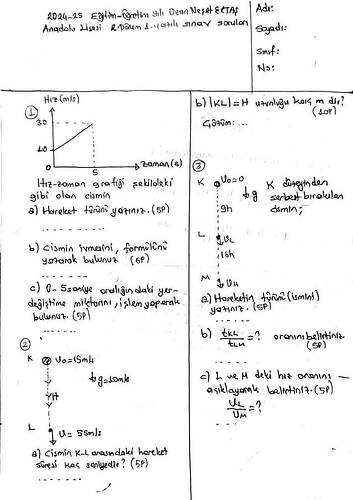 2024-25 Eğitim-öğretim yılı Ozan Neşet ERTAŞ
Anadolu Lisesi 2. Dönem 1. yazılı sınav soruları
Adı:
Soyadı:
Sınıf:
No:
①
Hız (m/s)
30
10
0
5
zaman (s)
Hız-zaman grafiği şekildeki
gibi olan cismin
a) Hareket türünü yazınız. (5P)
b) Cismin ivmesini, formülünü
yazarak bulunuz (6P)
c) 0-5 saniye aralığındaki yer-
değiştirme miktarını, işlem yaparak
bulunuz. (5P)
②
K
V₀=15m/s
g=10m/s
H
L
V=55m/s
a) Cismin K-L arasındaki hareket
süresi kaç saniyedir? (5P)
b) |KL|=H uzunluğu kaç m dir?
(10P)
Çözüm:...
③
K
V₀=0
g
9h
L
VL
16h
M
VM
K düzeyinden
serbest bırakılan
cismin;
a) Hareketin türünü (ismini)
yazınız. (5P)
b) tKL/tLM=? oranını belirtiniz.
(5P)
c) L ve M deki hız oranını
açıklayarak belirtiniz. (5P)
VL/VM=?